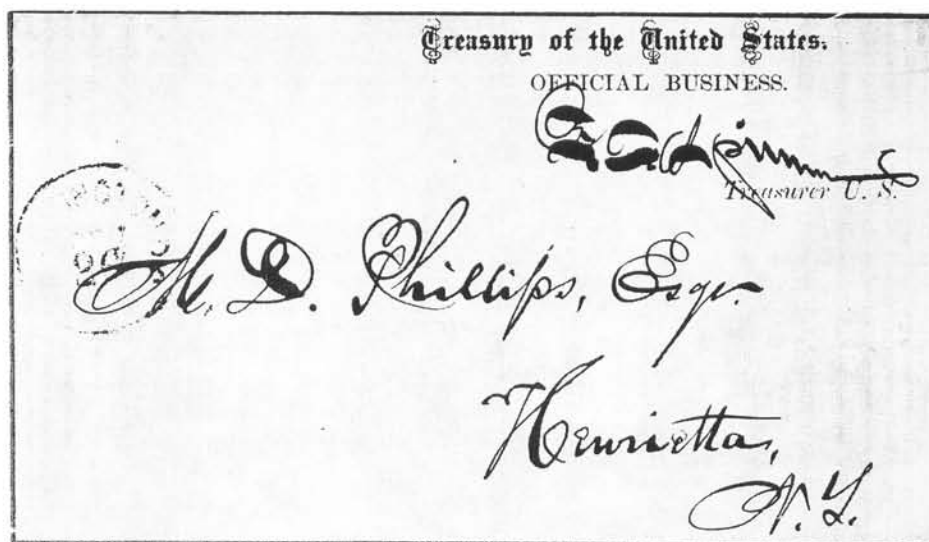 Treasury of the United States.
OFFICIAL BUSINESS.
F. E. Spinner
Treasurer U. S.
M. D. Phillips, Esqr.
Henrietta,
N. Y.